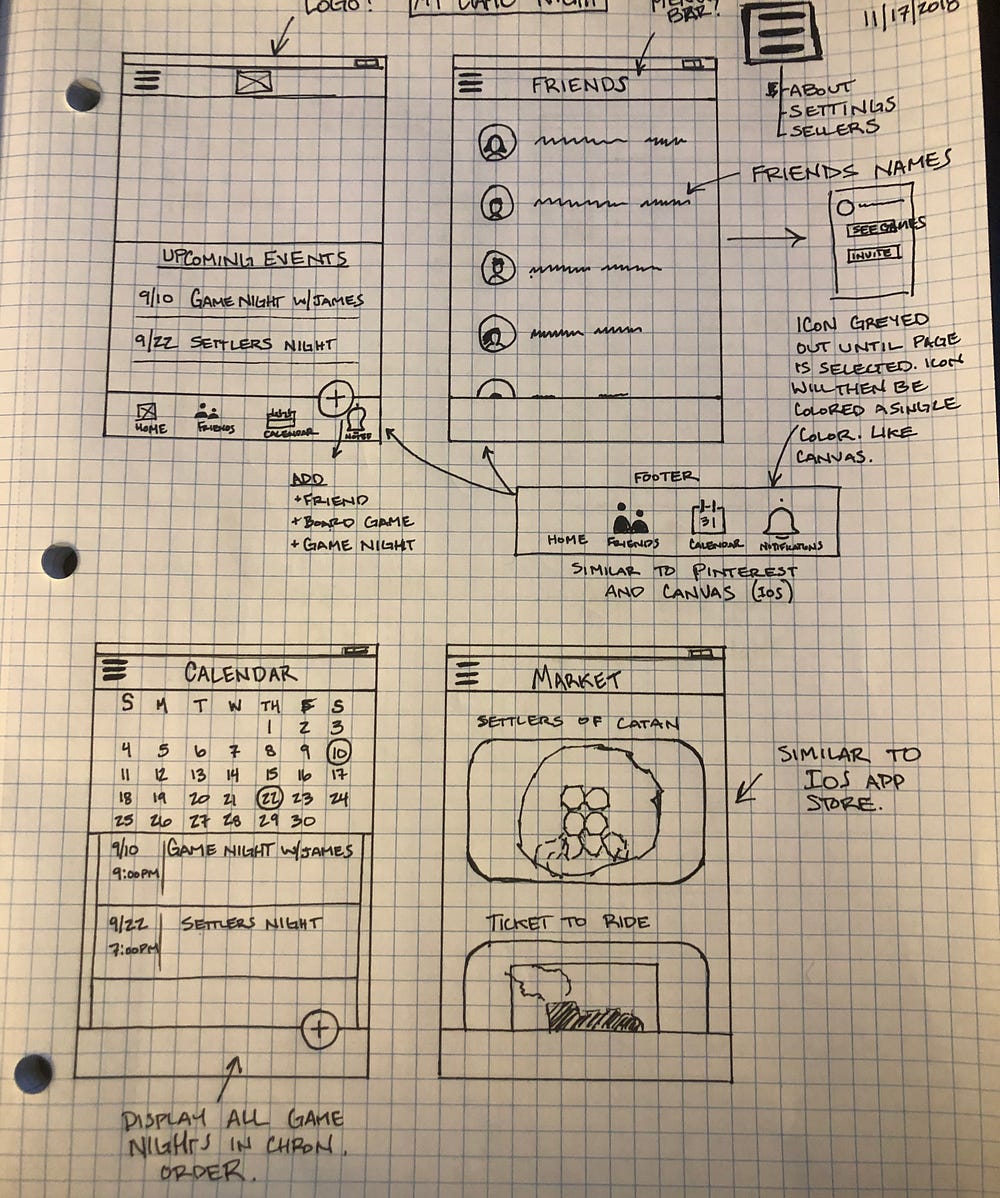 LOGO!
MY GAME NIGHT
BAR!
11/17/2018
ABOUT
SETTINGS
SELLERS
FRIENDS
FRIENDS NAMES
SEE GAMES
INVITE
UPCOMING EVENTS
9/10 GAME NIGHT W/JAMES
9/22 SETTLERS NIGHT
HOME
FRIENDS
CALENDAR
ICON GREYED
OUT UNTIL PAGE
IS SELECTED. ICON
WILL THEN BE
COLORED A SINGLE
COLOR. LIKE
CANVAS.
ADD
+ FRIEND
+ BOARD GAME
+ GAME NIGHT
FOOTER
31
HOME
FRIENDS
CALENDAR
NOTIFICATIONS
SIMILAR TO PINTEREST
AND CANVAS (IOS)
CALENDAR
S M T W TH F S
1 2 3
4 5 6 7 8 9 10
11 12 13 14 15 16 17
18 19 20 21 22 23 24
25 26 27 28 29 30
9/10 GAME NIGHT W/JAMES
9:00PM
9/22 SETTLERS NIGHT
7:00PM
DISPLAY ALL GAME
NIGHTS IN CHRON.
ORDER.
MARKET
SETTLERS OF CATAN
TICKET TO RIDE
SIMILAR TO
IOS APP
STORE.